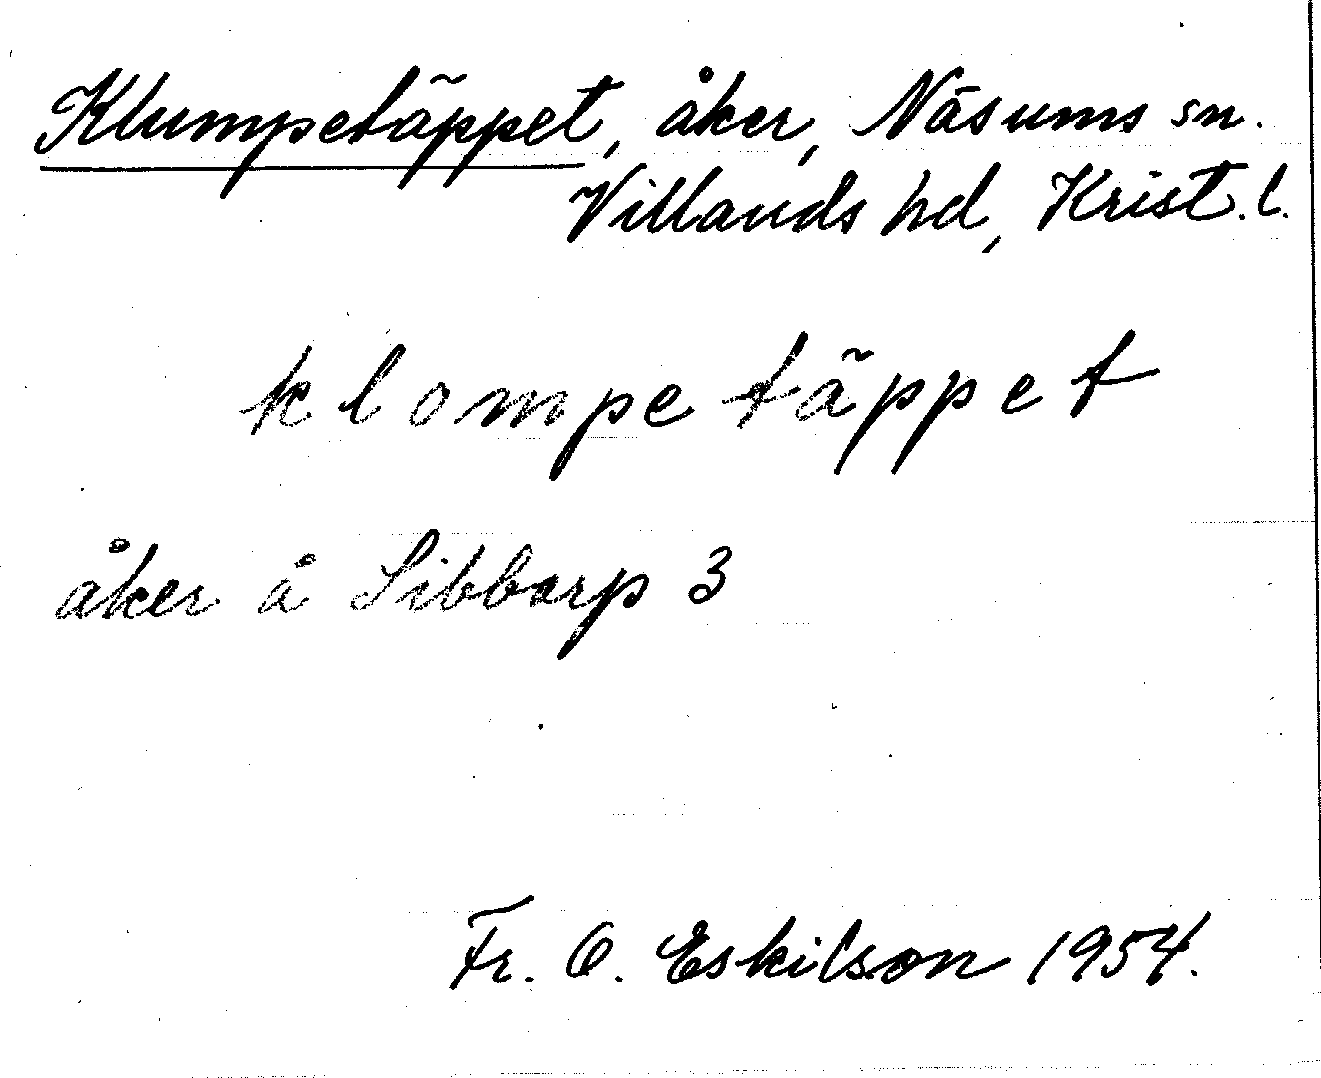 Klumpetäppet, åker, Näsums sn.
Villands hd, Krist. l.
klompetäppet
åker å Sibbarp 3
Fr. O. Eskilson 1954.